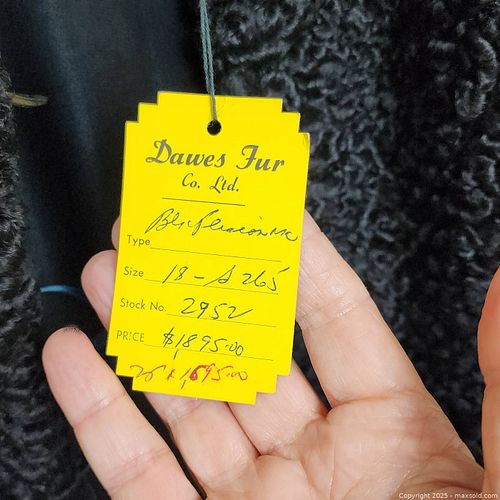 Dawes Fur
Co. Ltd.
Type
Size 18 - A 265
Stock No. 2952
PRICE $1,895.00
1,695.00
Copyright 2025 - maxsold.com